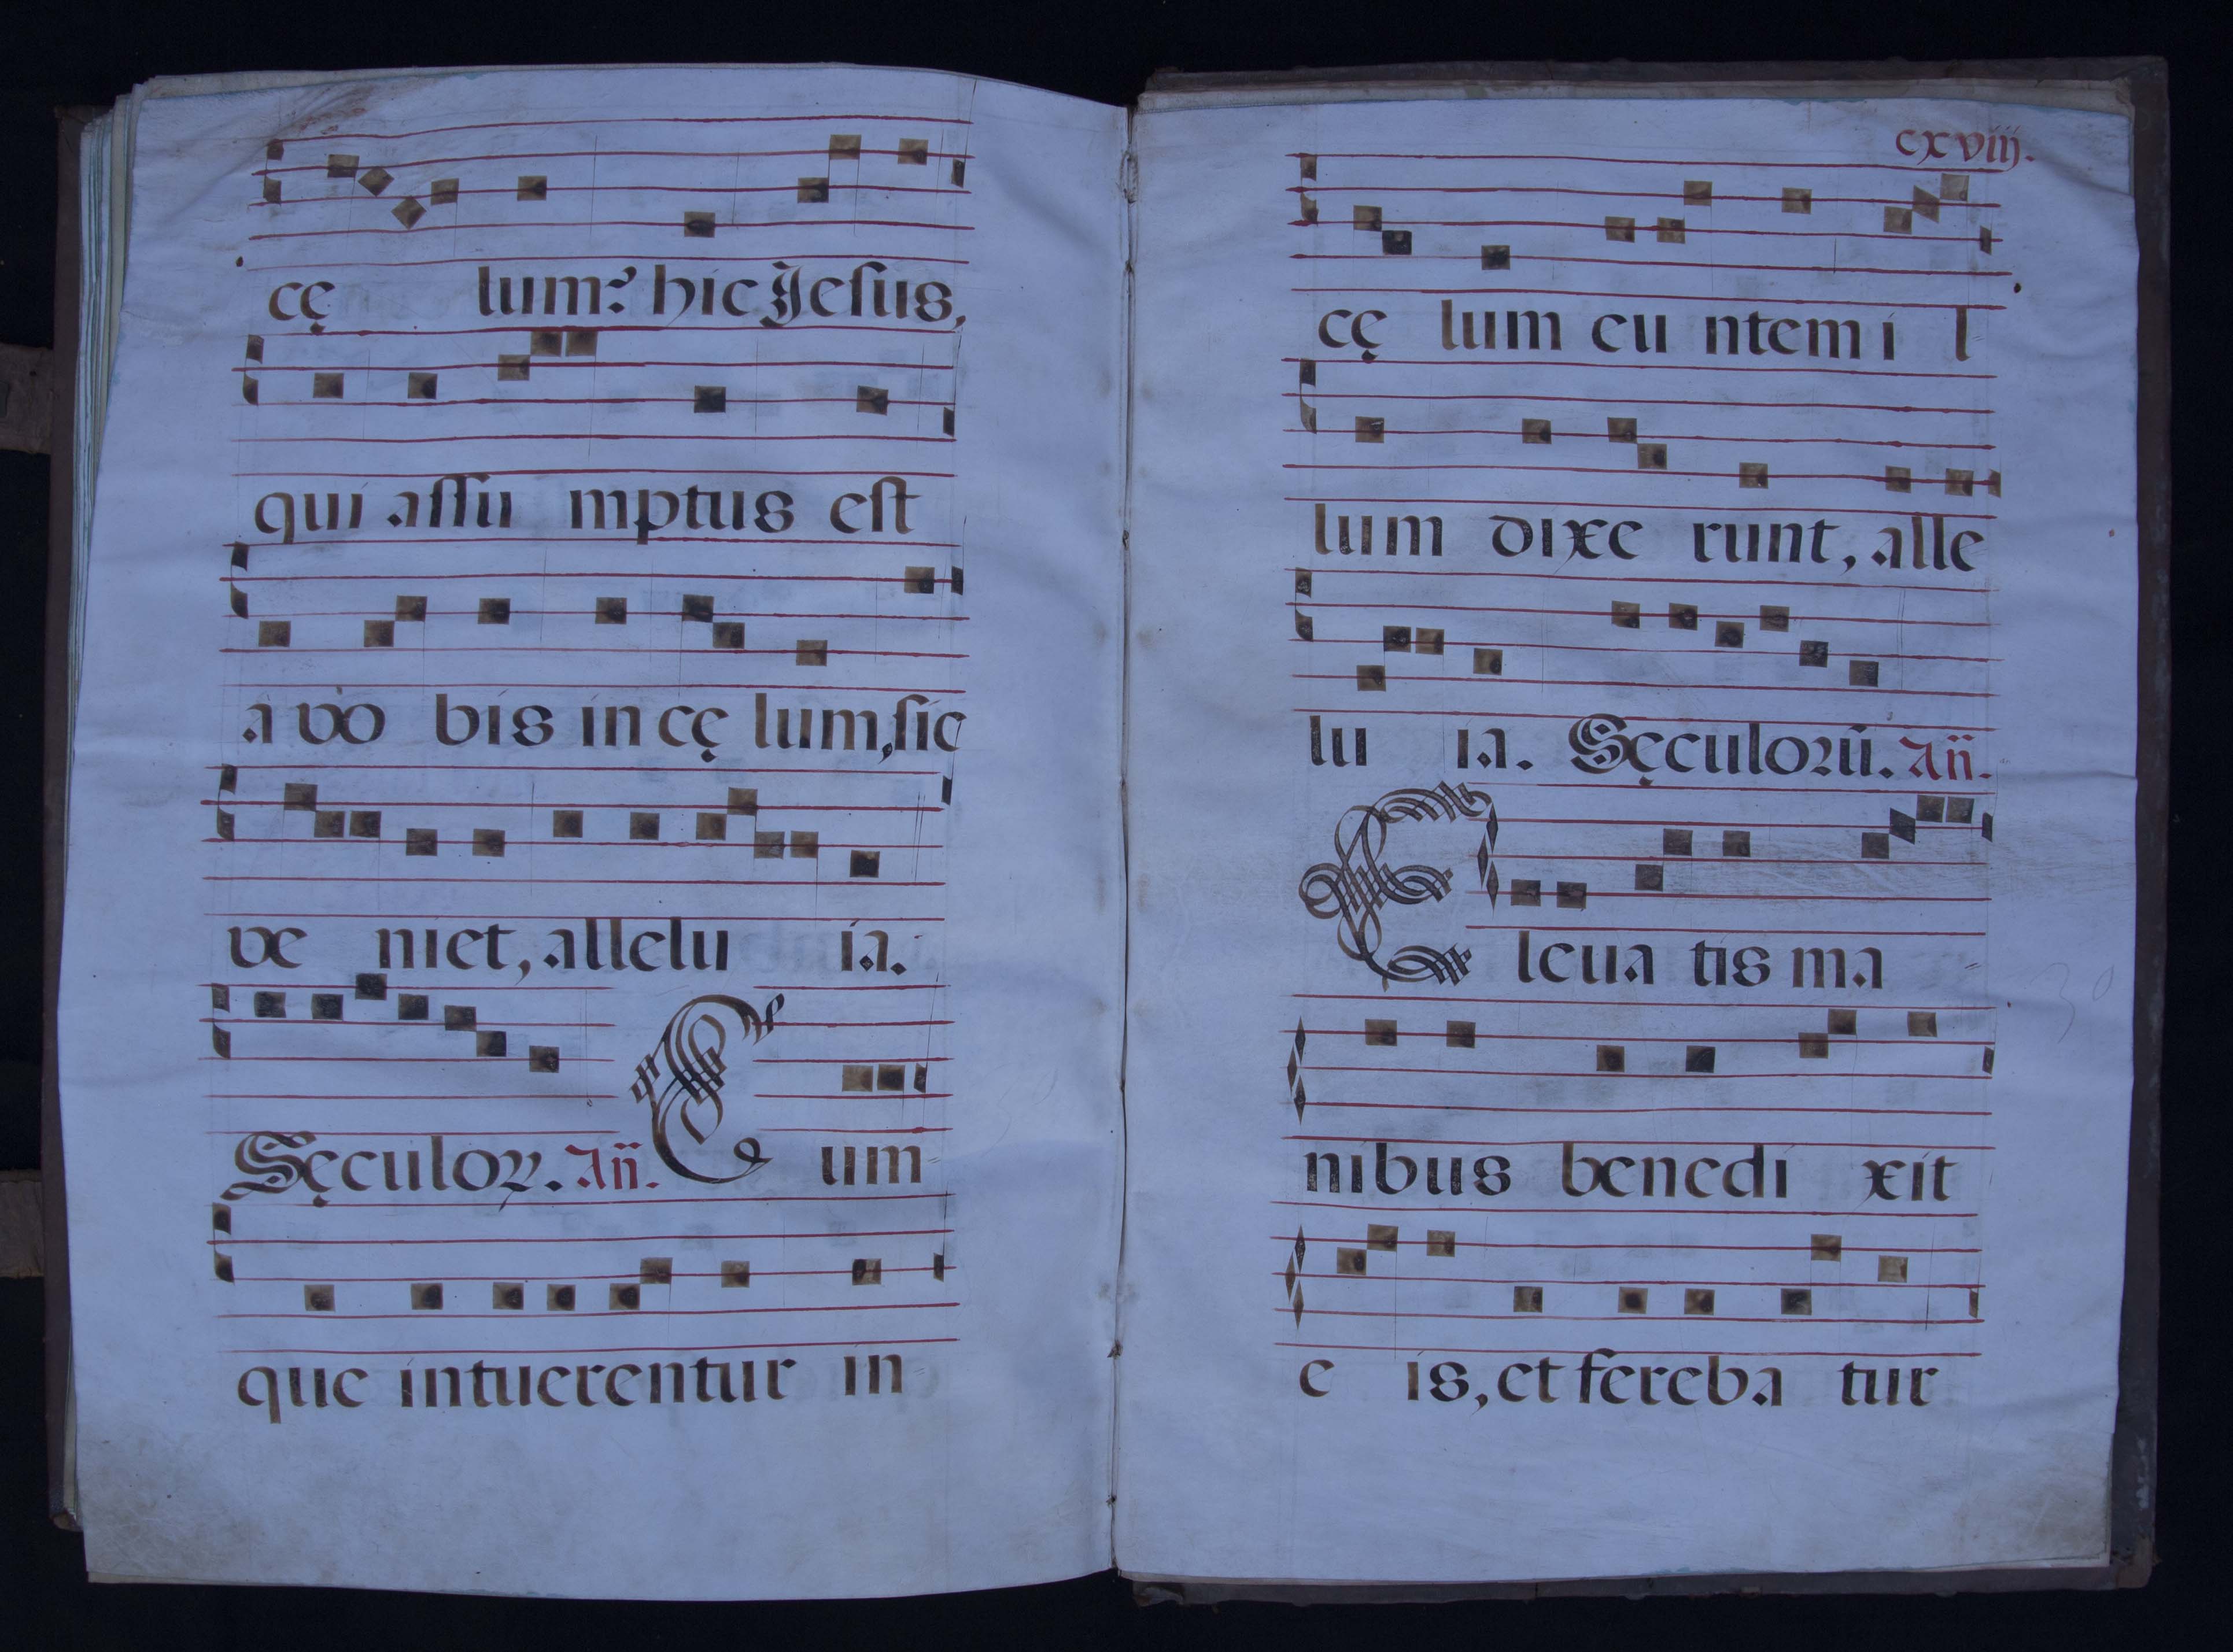 cę lum? hic Jesus,
qui assu mptus est
a vo bis in cę lum, sic
ve niet, allelu ia.
Sęculoꝝ. Añ. C um
que intuerentur in
cxviij.
cę lum eu ntem i l
lum dixe runt, alle
lu ia. Sęculorũ. Añ.
E leua tis ma
nibus benedi xit
e is, et fereba tur